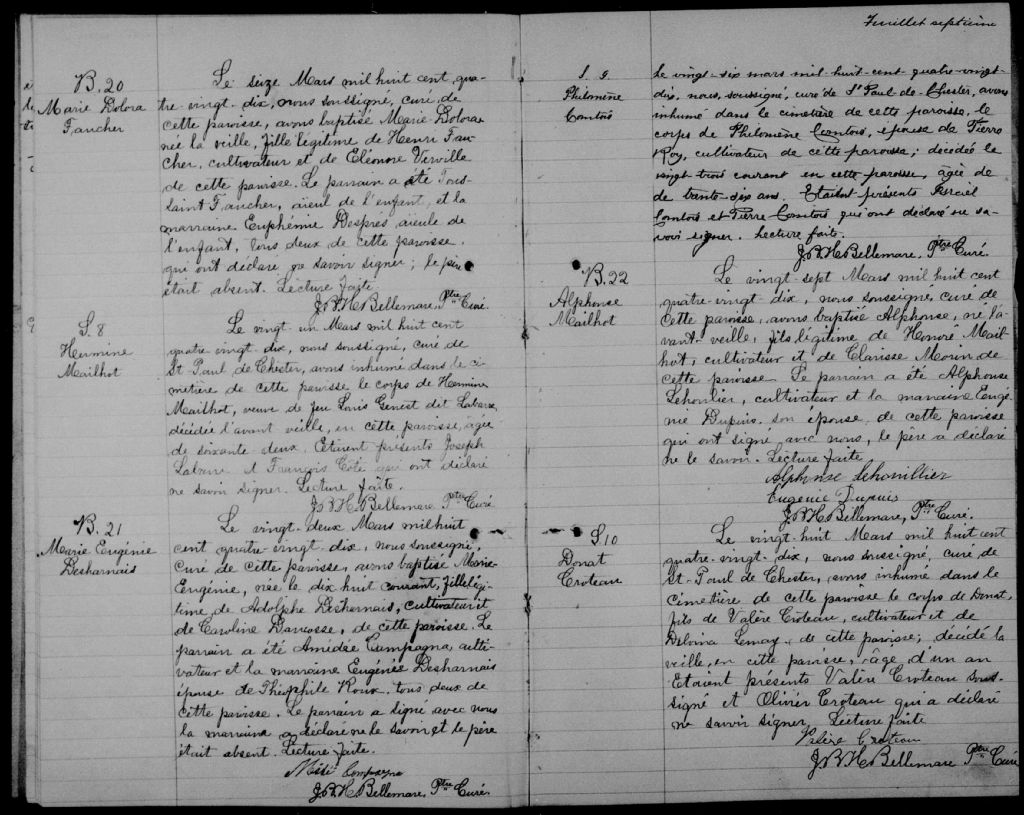 B. 20
Marie Dolora
Faucher
Le seize Mars mil huit cent qua-
tre-vingt-dix, nous soussigné, curé de
cette paroisse, avons baptisé Marie Dolora
née la veille, fille légitime de Henri Fau-
cher, cultivateur et de Eléonore Verville
de cette paroisse. Le parrain a été Tous-
saint Faucher, aieul de l'enfant, et la
marraine Euphémie Després aieule de
l'enfant, tous deux de cette paroisse,
qui ont déclaré ne savoir signer; le père
était absent. Lecture faite.
J.B.H. Bellemare, Ptre Curé.
S. 8
Hermine
Mailhot
Le vingt un Mars mil huit cent
quatre-vingt-dix, nous soussigné, curé de
St-Paul de Chester, avons inhumé dans le ci-
metière de cette paroisse le corps de Hermine
Mailhot, veuve de feu Louis Genest dit Labarre,
décédée l'avant veille, en cette paroisse, agée
de soixante deux. Etaient présents Joseph
Labarre et François Coté qui ont déclaré
ne savoir signer. Lecture faite.
J.B.H. Bellemare Ptre Curé
B. 21
Marie Eugénie
Desharnais
Le vingt-deux Mars mil huit
cent quatre vingt-dix, nous soussigné,
curé de cette paroisse, avons baptisé Marie
Eugénie, née le dix huit courant, fille légi-
time de Adolphe Desharnais, cultivateur et
de Caroline, de cette paroisse. Le
parrain a été Amédée Campagna, culti-
vateur et la marraine Eugénie Desharnais
épouse de Théophile Roux, tous deux de
cette paroisse. Le parrain a signé avec nous
la marraine a déclaré ne le savoir, et le père
était absent. Lecture faite.
Campagna
J.B.H. Bellemare, Ptre Curé.
Feuillet septième
S. 9
Philomène
Comtois
Le vingt-six mars mil-huit-cent-quatre-vingt-
dix, nous, soussigné, curé de St Paul-de-Chester, avons
inhumé dans le cimetière de cette paroisse, le
corps de Philomène Comtois, épouse de Pierre
Roy, cultivateur de cette paroisse; décédée le
vingt-trois courant en cette paroisse, âgée de
de trente-six ans. Etaient présents
Comtois et Pierre Comtois qui ont déclaré ne sa-
voir signer. Lecture faite.
J.B.H. Bellemare, Ptre Curé
B. 22
Alphonse
Mailhot
Le vingt sept Mars mil huit cent
quatre-vingt-dix, nous soussigné, curé de
cette paroisse, avons baptisé Alphonse, né l'a-
vant-veille, fils légitime de Honoré Mail-
hot, cultivateur et de Clarisse Morin de
cette paroisse. Le parrain a été Alphonse
cultivateur et la marraine Eugé-
nie Dupuis son épouse de cette paroisse
qui ont signé avec nous, le père a déclaré
ne le savoir. Lecture faite.
Alphonse
Eugenie Dupuis
J.B.H. Bellemare, Ptre Curé.
S. 10
Donat
Croteau
Le vingt-huit Mars mil huit cent
quatre-vingt-dix, nous soussigné, curé de
St-Paul de Chester, avons inhumé dans le
cimetière de cette paroisse le corps de Donat,
fils de Valère Croteau, cultivateur et de
Delvina Lemay, de cette paroisse; décédé la
veille, en cette paroisse, âgé d'un an
Etaient présents Valère Croteau sous-
signé et Olivier Croteau qui a déclaré
ne savoir signer. Lecture faite
Valère Croteau
J.B.H. Bellemare Ptre Curé